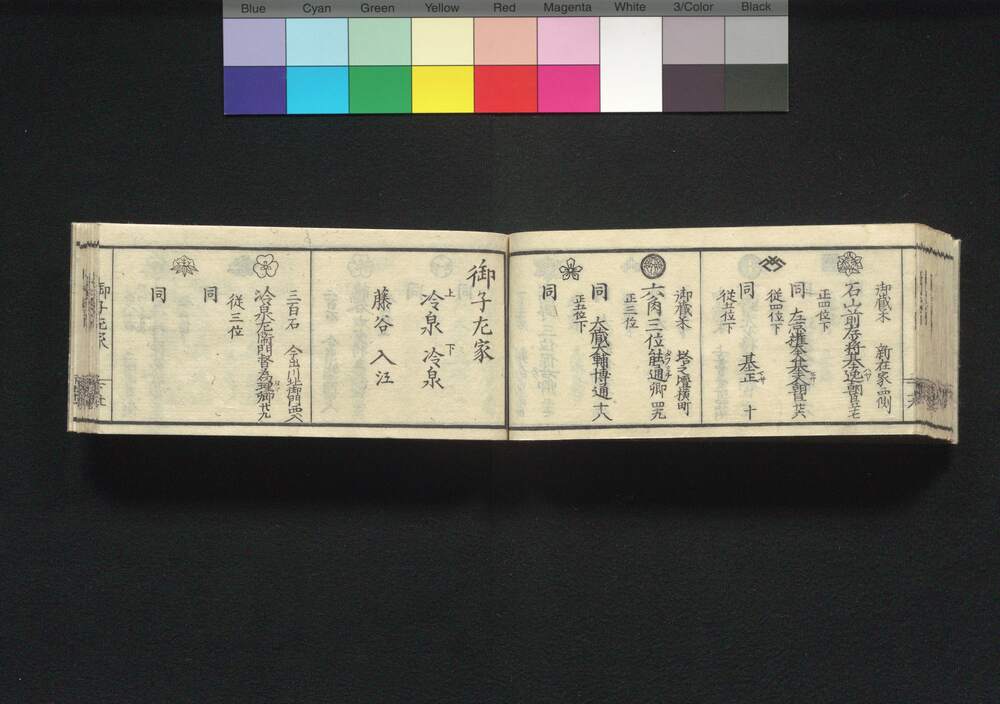 Blue Cyan Green Yellow Red Magenta White 3/Color Black
御蔵米 新在家西側
石山前右将基逸朝臣
正四位下
同 左
従四位下
同 基正 十
従五位下
御蔵米 塔之壇横町
六角三位能通卿 四九
正三位
同 大蔵大輔博通 十八
正五位下
御子左家
上 冷泉 下 冷泉
藤谷 入江
三百石 今出川北御門西へ入
冷泉左衛門督為理卿 廿九
従三位
同
同
御子左家